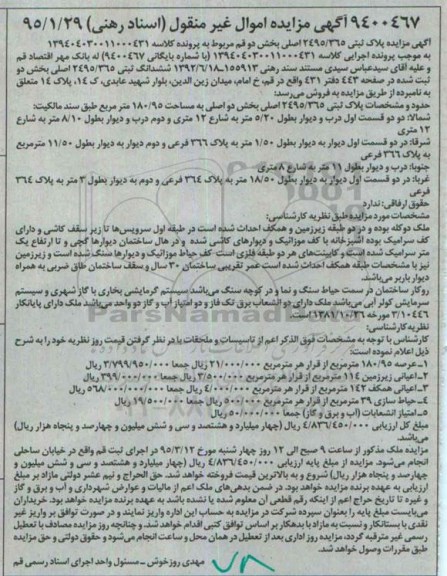 ۹۴۰۰۴۶۷ آگهی مزایده اموال غیر منقول (اسناد رهنی) ۹۵/۱/۲۹
آگهی مزایده پلاک ثبتی ۲۴۹۵/۳۶۵ اصلی بخش دو قم مربوط به پرونده کلاسه ۱۳۹۴۰۴۰۳۰۰۱۱۰۰۰۴۳۱
به موجب پرونده اجرایی کلاسه ۱۳۹۴۰۴۰۳۰۰۱۱۰۰۰۴۳۱ (با شماره بایگانی ۹۴۰۰۴۶۷) له بانک مهر اقتصاد قم
و علیه آقای سیدعباس سیدی مستند سند رهنی ۱۵۵۹۱۳ـ۱۳۹۲/۶/۱۸ ششدانگ ثبتی ۲۴۹۵/۳۶۵ اصلی بخش دو
ثبت شده در صفحه ۴۴۳ دفتر ۴۳۱ واقع در قم، خ امام، میدان زین الدین، بلوار شهید عابدی، ک ۱۴، پلاک ۱۴ متعلق
به نامبرده از طریق مزایده به فروش می‌رسد:
حدود و مشخصات پلاک ثبتی ۲۴۹۵/۳۶۵ اصلی بخش دو اصلی به مساحت ۱۸۰/۹۵ متر مربع طبق سند مالکیت:
شمالا: دو دو قسمت اول درب و دیوار بطول ۵/۲۰ متر به شارع ۱۲ متری و دوم درب و دیوار بطول ۱۰/۸ متر به شارع
۱۲ متری
شرقا: در دو قسمت اول دیوار به دیوار بطول ۱/۵۰ متر به پلاک ۳۶۶ فرعی و دوم دیوار به دیوار بطول ۱۱/۵۰ مترمربع
به پلاک ۳۶۶ فرعی
جنوبا: درب و دیوار بطول ۱۱ متر به شارع ۸ متری
غربا: در دو قسمت اول دیوار به دیوار بطول ۱۸/۵۰ متر به پلاک ۳۶۴ فرعی و دوم به دیوار بطول ۳ متر به پلاک ۳۶۴
فرعی
حقوق ارفاقی: ندارد
مشخصات مورد مزایده طبق نظریه کارشناسی:
ملک دوکله بوده و در دو طبقه زیرزمین و همکف احداث شده است در طبقه اول سرویس‌ها تا زیر سقف کاشی و دارای
کف سرامیک بوده آشپزخانه با کف موزائیک و دیوارهای کاشی شده و در هال ساختمان دیوارها گچی و تا ارتفاع یک
متر سرامیک شده است و کابینت‌های هر دو طبقه فلزی است کف حیاط موزائیک و دیوارها سنگ شده است و زیرزمین
نیز با مشخصات طبقه همکف احداث شده است عمر تقریبی ساختمان ۳۰ سال و سقف ساختمان طاق ضربی به همراه
دیوار باربر می‌باشد.
روکار ساختمان در سمت حیاط سنگ و نما و در کوچه سنگ می‌باشد سیستم گرمایشی بخاری با گاز شهری و سیستم
سرمایش کولر آبی می‌باشد ملک دارای دو انشعاب برق تک فاز و دو امتیاز آب و گاز دو واحد می‌باشد ملک دارای پایانکار
۳/۱۰۴۴۶ مورخه ۱۳۸۱/۱۰/۲۶ است.
نظریه کارشناسی:
کارشناس با توجه به مشخصات فوق الذکر اعم از تاسیسات و ملحقات با در نظر گرفتن قیمت روز نظریه خود را به شرح
ذیل اعلام نموده است:
۱ـ عرصه ۱۸۰/۹۵ مترمربع از قرار هر مترمربع ۲۱/۰۰۰/۰۰۰ ریال جمعا ۳/۷۹۹/۹۵۰/۰۰۰ ریال
۲ـ اعیانی زیرزمین ۱۱۴ مترمربع از قرار هر مترمربع ۳/۵۰۰/۰۰۰ ریال جمعا ۳۹۹/۰۰۰/۰۰۰ ریال
۳ـ اعیانی همکف ۱۴۲ مترمربع از قرار هر مترمربع ۴/۰۰۰/۰۰۰ ریال جمعا ۵۶۸/۰۰۰/۰۰۰ ریال
۴ـ حیاط سازی ۳۹ مترمربع از قرار هر مترمربع ۵۰۰/۰۰۰ ریال جمعا ۱۹/۵۰۰/۰۰۰ ریال
۵ـ امتیاز انشعابات (آب و برق و گاز) جمعا ۵۰/۰۰۰/۰۰۰ ریال
مبلغ کل ارزیابی ۴/۸۳۶/۴۵۰/۰۰۰ ریال (چهار میلیارد و هشتصد و سی و شش میلیون و چهارصد و پنجاه هزار ریال)
می‌باشد.
مزایده ملک مذکور از ساعت ۹ صبح الی ۱۲ روز چهار شنبه مورخ ۹۵/۳/۱۲ در اجرای ثبت قم واقع در خیابان ساحلی
انجام می‌شود. مزایده از مبلغ پایه ارزیابی ۴/۸۳۶/۴۵۰/۰۰۰ ریال (چهار میلیارد و هشتصد و سی و شش میلیون و
چهارصد و پنجاه هزار ریال) شروع و به بالاترین قیمت فروخته خواهد شد. حق الحراج و نیم عشر دولتی مازاد بر مبلغ
ارزیابی به عهده برنده مزایده خواهد بود. در ضمن بدهی های ملک اعم از مالیات و عوارض شهرداری و آب و برق و گاز
و غیره تا تاریخ حراج اعم از اینکه رقم قطعی آن معلوم شده یا نشده باشد به عهده برنده مزایده خواهد بود. خریداران
می‌بایست مبلغ پایه را بعنوان سپرده شرکت در مزایده به حساب این اداره واریز نمایند و در صورت توافق بر واریز غیر
نقدی با بستانکار و نسبت به مازاد با بدهکار بر اساس توافق کتبی اقدام خواهد شد. و چنانچه روز مزایده مصادف با تعطیل
رسمی غیر مترقبه گردد، مزایده روز اداری بعد از تعطیل در همان محل و ساعت انجام می‌شود و حقوق دولتی و حق مزایده
طبق مقررات وصول خواهد شد.
مهدی روزخوش ـ مسئول واحد اجرای اسناد رسمی قم
۷۸